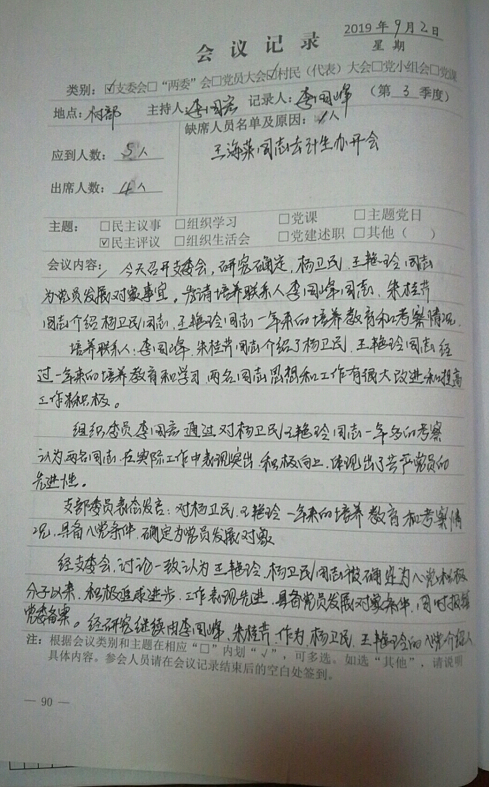 2019年9月2日
会议记录
星期
类别：☑支委会□“两委”会□党员大会☑村民（代表）大会□党小组会□党课
地点：村部 主持人：李国宏 记录人：李国峰 （第3季度）
缺席人员名单及原因：1人
应到人数：5人
王海英同志去计生办开会
出席人数：4人
主题：□民主议事 □组织学习 □党课 □主题党日
☑民主评议 □组织生活会 □党建述职 □其他（ ）
会议内容：今天召开支委会，研究确定，杨卫民、王艳玲同志
为党员发展对象事宜。邀请培养联系人李国峰同志，朱桂芹
同志介绍杨卫民同志，王艳玲同志一年来的培养教育和考察情况。
培养联系人：李国峰，朱桂芹同志介绍了杨卫民、王艳玲同志经
过一年来的培养教育和学习，两名同志思想和工作有很大改进和提高
工作积极。
组织委员李国宏通过对杨卫民王艳玲同志一年多的考察
认为两名同志，在实际工作中表现突出，积极向上，体现出了共产党员的
先进性。
支部委员表态发言：对杨卫民，王艳玲一年来的培养教育和考察情
况，具备入党条件，确定为党员发展对象
经支委会，讨论一致认为王艳玲，杨卫民同志被确定为入党积极
分子以来，积极追求进步，工作表现先进，具备党员发展对象条件，同时报镇
党委备案。经研究继续由李国峰，朱桂芹作为杨卫民，王艳玲的入党介绍人
注：根据会议类别和主题在相应“□”内划“√”，可多选。如选“其他”，请说明
具体内容。参会人员请在会议记录结束后的空白处签到。
— 90 —